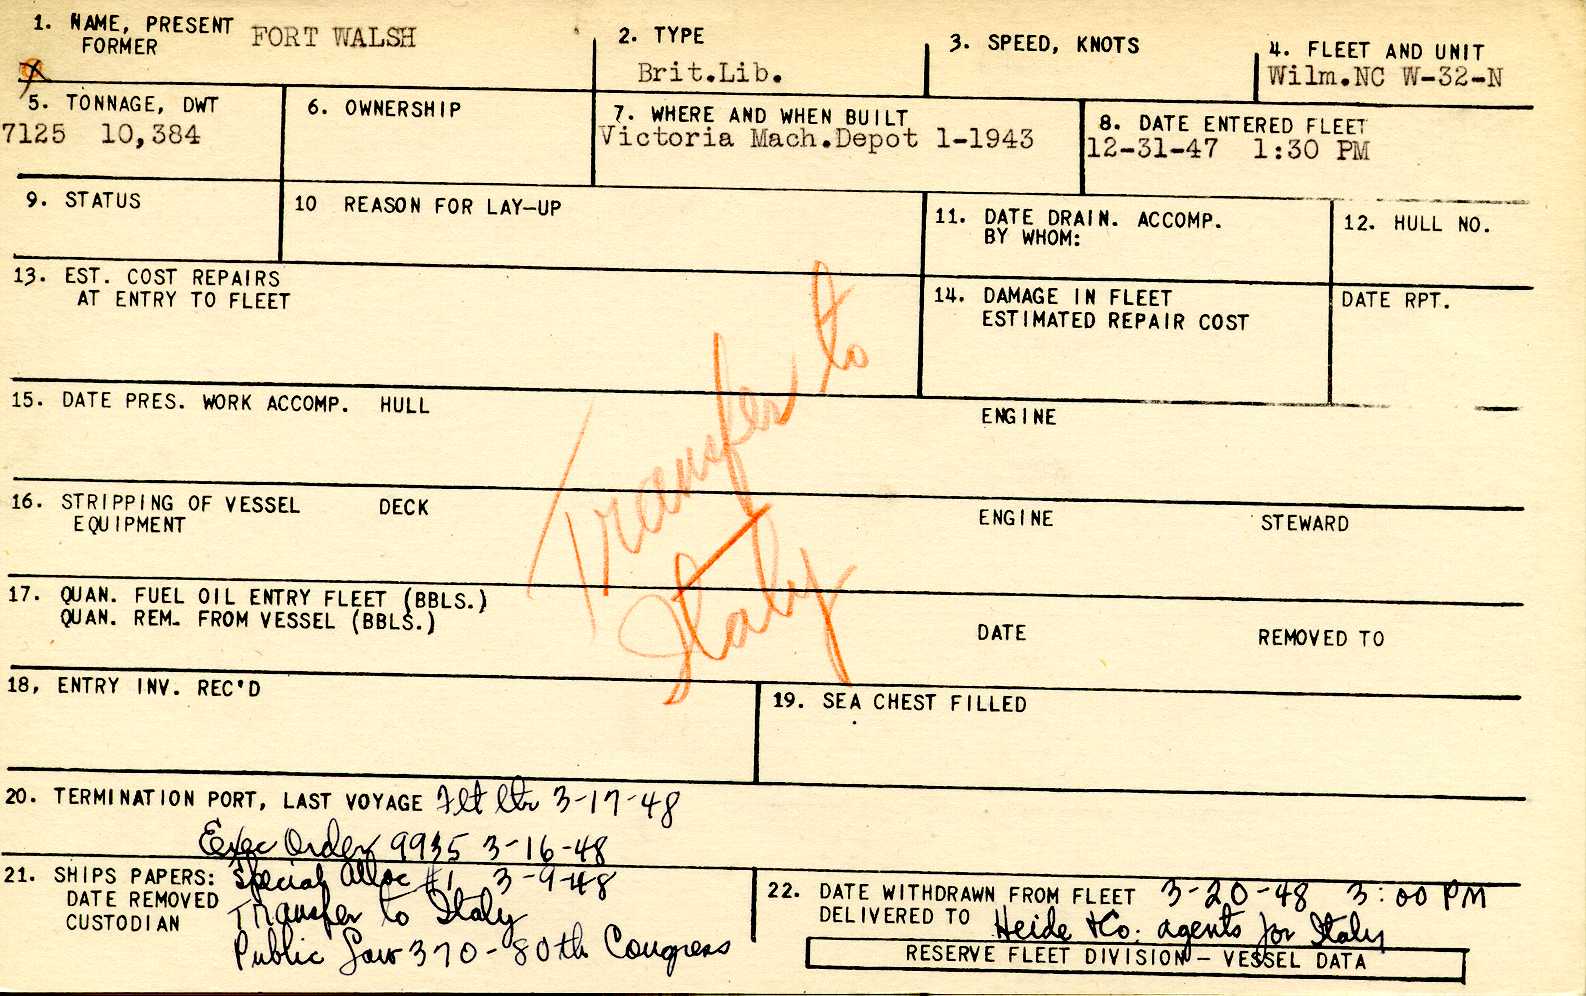 1. NAME, PRESENT FORT WALSH
FORMER
2. TYPE
Brit.Lib.
3. SPEED, KNOTS
4. FLEET AND UNIT
Wilm.NC W-32-N
5. TONNAGE, DWT
7125 10,384
6. OWNERSHIP
7. WHERE AND WHEN BUILT
Victoria Mach.Depot 1-1943
8. DATE ENTERED FLEET
12-31-47 1:30 PM
9. STATUS
10 REASON FOR LAY-UP
11. DATE DRAIN. ACCOMP.
BY WHOM:
12. HULL NO.
13. EST. COST REPAIRS
AT ENTRY TO FLEET
14. DAMAGE IN FLEET
ESTIMATED REPAIR COST
DATE RPT.
Transfer to
Italy
15. DATE PRES. WORK ACCOMP. HULL
ENGINE
16. STRIPPING OF VESSEL
EQUIPMENT
DECK
ENGINE
STEWARD
17. QUAN. FUEL OIL ENTRY FLEET (BBLS.)
QUAN. REM. FROM VESSEL (BBLS.)
DATE
REMOVED TO
18, ENTRY INV. REC'D
19. SEA CHEST FILLED
20. TERMINATION PORT, LAST VOYAGE Flt ltr 3-17-48
Exec Order 9935 3-16-48
21. SHIPS PAPERS: Special Alloc #1 3-9-48
DATE REMOVED Transfer to Italy
CUSTODIAN Public Law 370-80th Congress
22. DATE WITHDRAWN FROM FLEET 3-20-48 3:00 PM
DELIVERED TO Heide & Co. agents for Italy
RESERVE FLEET DIVISION – VESSEL DATA